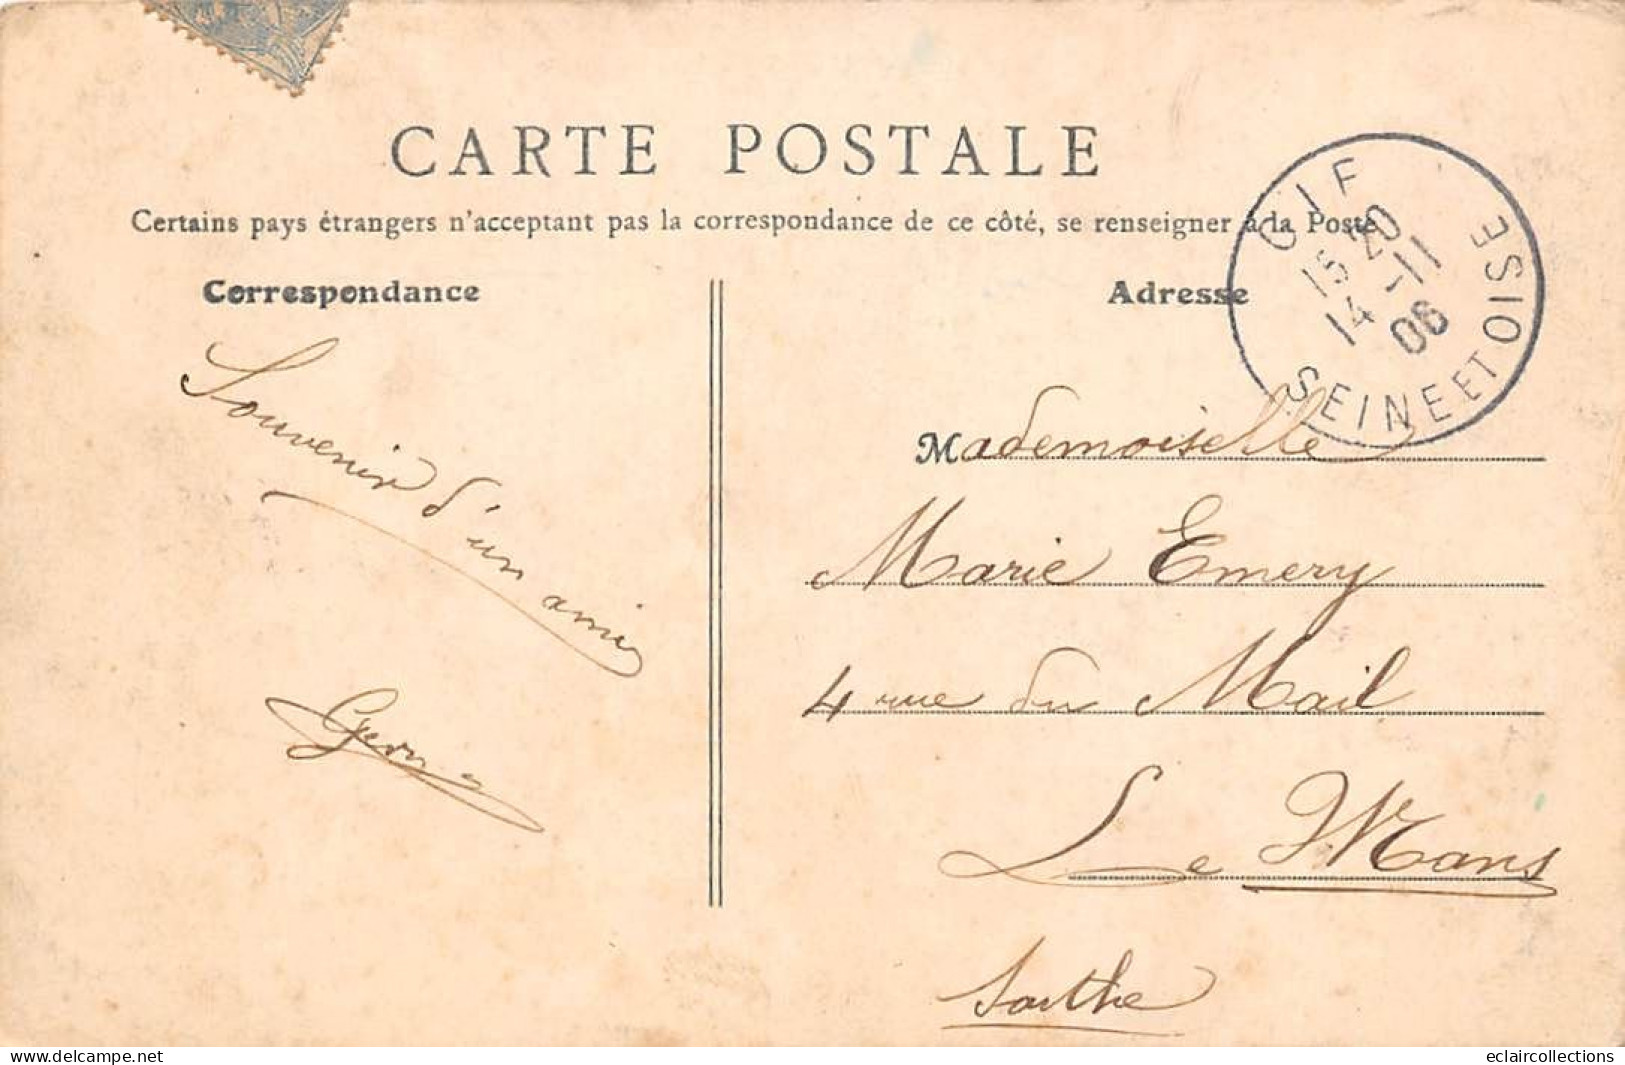 CARTE POSTALE
Certains pays étrangers n'acceptant pas la correspondance de ce côté, se renseigner à la Poste
Correspondance
Adresse
GIF
15 20
14 -11
06
SEINE ET OISE
Souvenir d'un ami
Mademoiselle
Marie Emery
4 rue du Mail
Le Mans
Sarthe
www.delcampe.net
eclaircollections